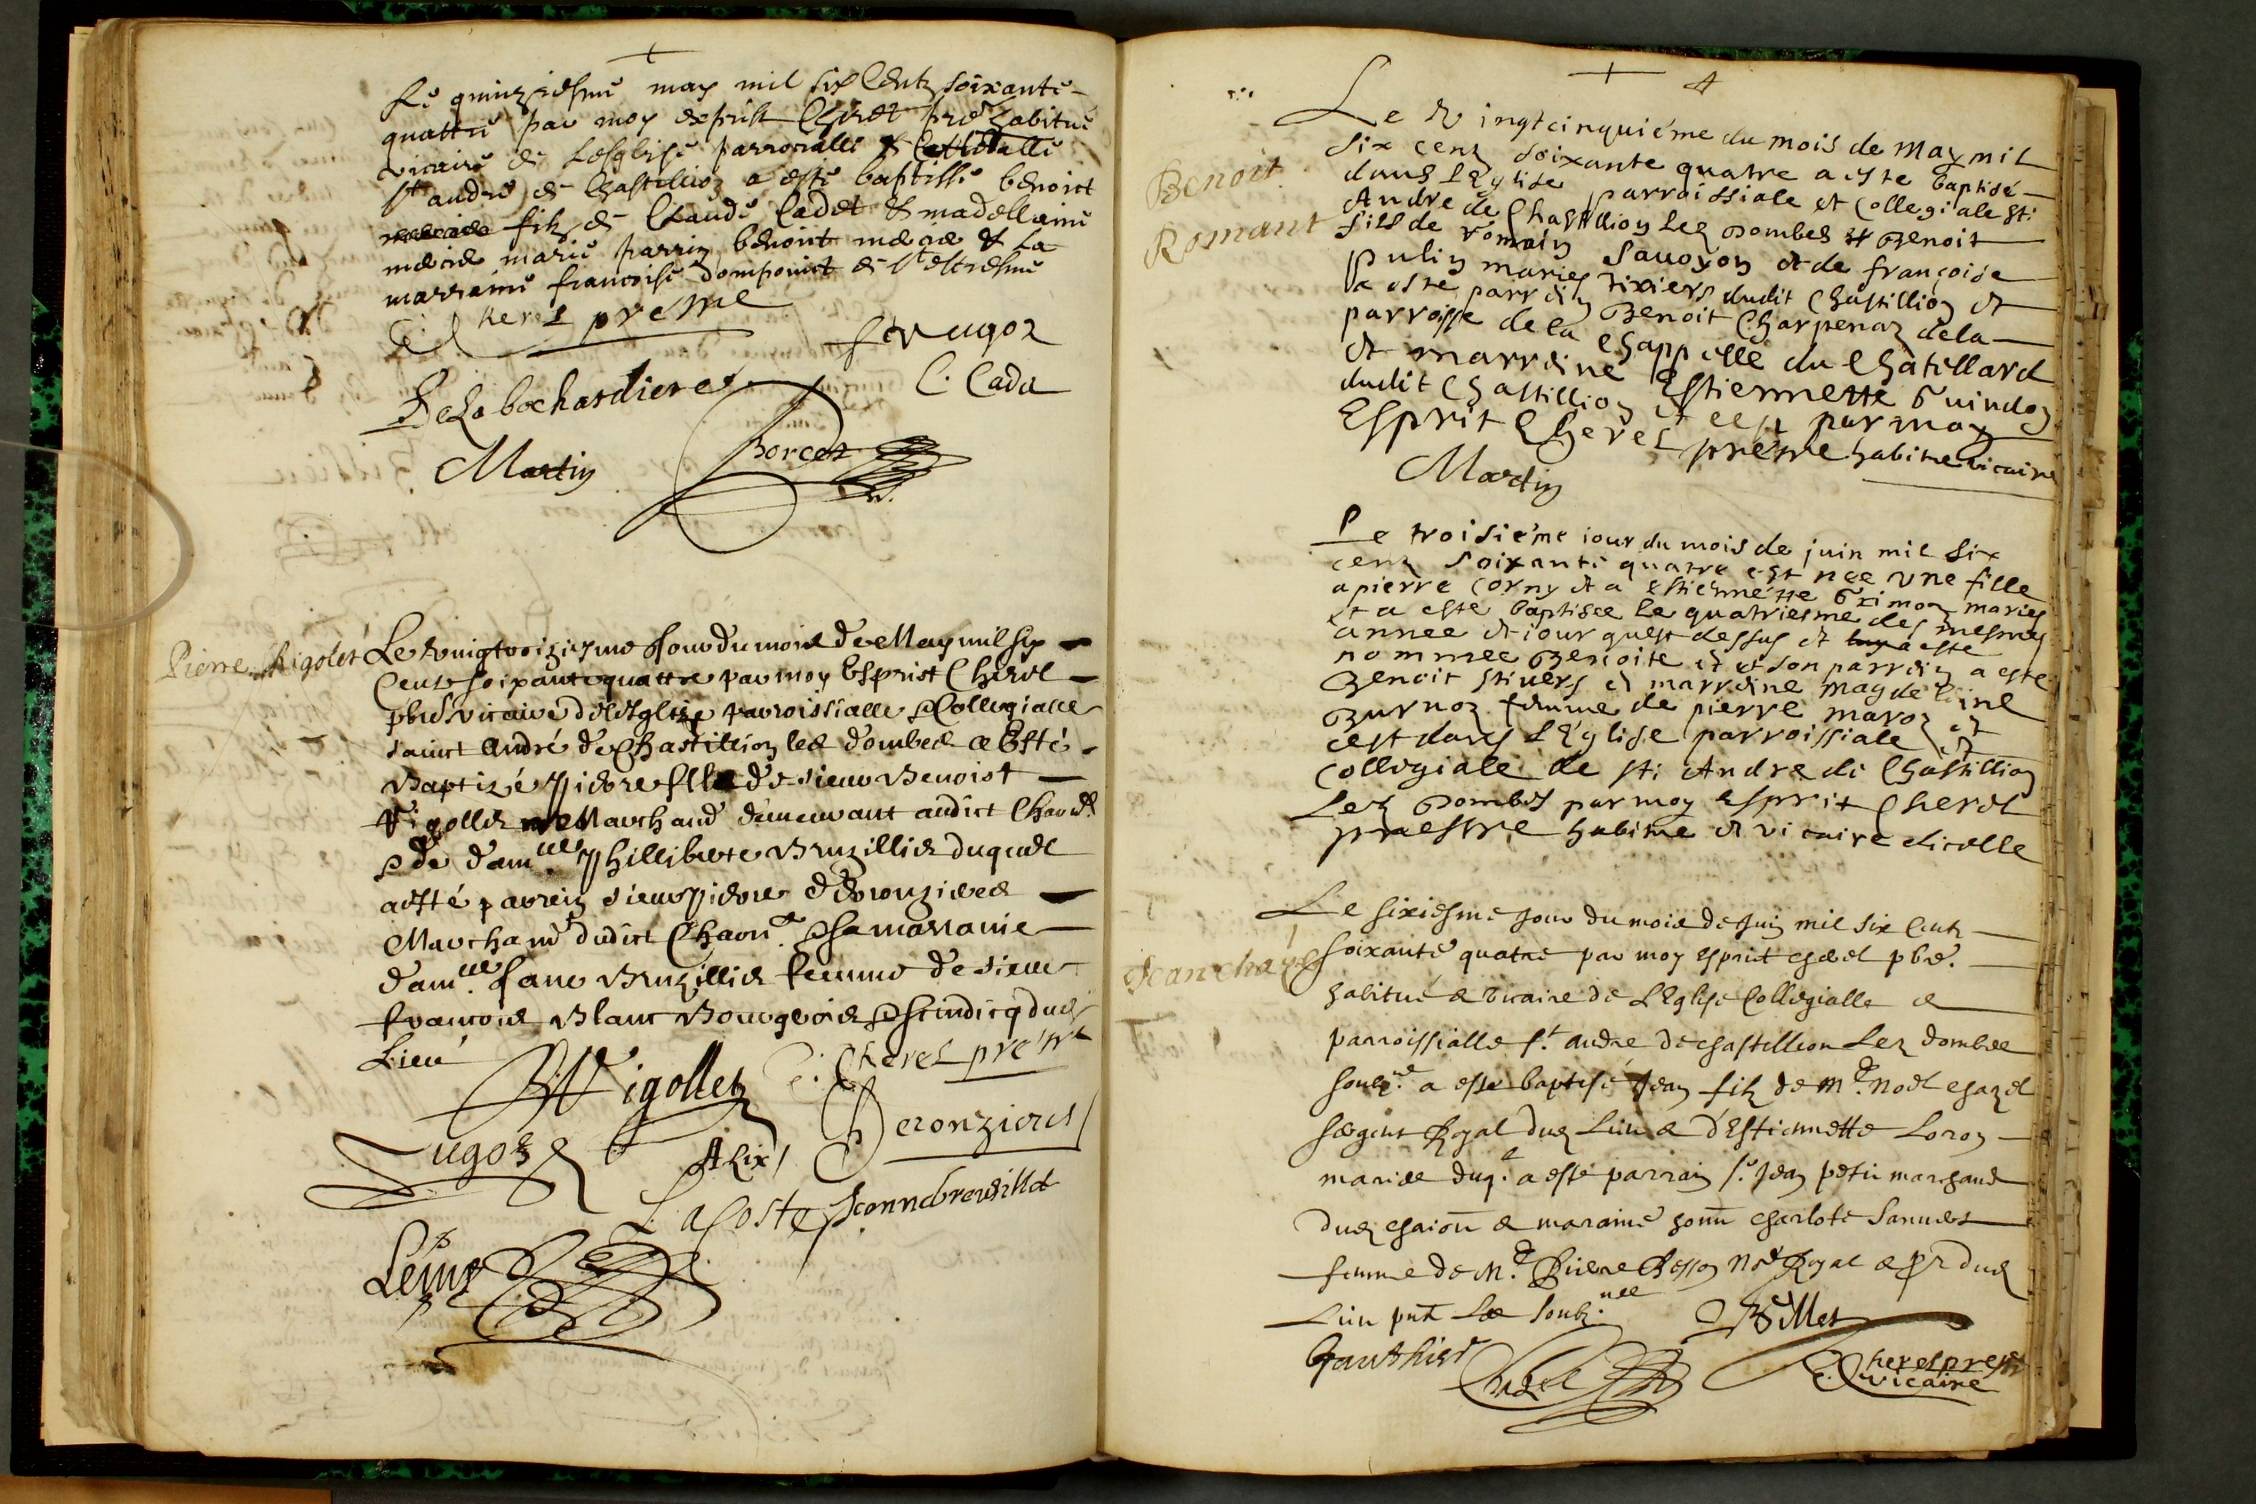 Le quinziesme may mil six Centz soixante
quattre par moy esprit Cherel prbe habitue
vicaire de Lesglise parrocialle & Collegialle
st andre de Chastillion a este baptisse benoict
filz de Claude Cadet & madellaine
mariés parrin benoict & La
marraine francoise domponict de
E Cherel prestre
C. Cada
De La bochardiere
Martin
Borcet
Pierre Rigolet
Le vingtroiziesme Jour du mois de May mil six
Cents soixante quattre par moy Esprist Cherel
pbre vicaire de lesglize parroissialle & Collegialle
sainct André de Chastillion les dombes a Esté
Baptizé Pierre fils de sieur Benoist
Rigollet Marchand demeurant audict Chaon
& de damlle Philliberte Bruzillier duquel
a esté parrin sieur Pierre Deronzieres
Marchand dudict Chaon & sa marraine
damlle Jane Bruzillier femme de sieur
francois Blanc Bourgeois & scindicq dud
Lieu
B Rigollet
E. Cherel prestre
Deronzieres
Alix
LaCoste
4
Benoit
Romant
Le Vingtcinquiéme du mois de May mil
six cenz soixante quatre a este baptisé
dans l'Eglise parroissiale et Collegiale sti
André de Chastillion Lez Dombes Benoit
fils de romain Savoyon et de françoise
pulin maries rixiers dudit Chastillion et
a este parrein Benoit Charpenaz de la
parroisse de la Chappelle du Chatellard
et marreine Estiennette Guindon
dudit Chastillion et cest par moy
Esprit Cherel prestre habitue vicaire
Martin
Le troisiéme iour du mois de juin mil six
cenz soixante quatre est nee une fille
a pierre Corny et a Estiennette Grimon maries
et a este baptisee le quatriesme des mesmes
annee et iour quest dessus et a este
nommee Benoite et et son parrein a este
Benoit stivers et marreine magdeleine
Burnoz femme de pierre maroz et
cest dans l'Eglise parroissiale et
Collegiale de sti Andre de Chastillion
Lez Dombes par moy Esprit Cherel
praestre habitue et vicaire dicelle
Jean chazel
Le sixiesme jour du mois de Juin mil six Centz
soixante quatre par moy Esprit cherel pbre.
habitué & vicaire de LEglise Collegialle &
parroissialle st. andre de chastillion Lez dombes
a este baptisé Jean filz de Me. Noel chazel
sergent Royal dud Lieu & d'Estiennette Loron
maries duql a esté parrain sr. Jean petit marchand
dud chaion & maraine honn charlote Sanuet
femme de Me. Pierre Besson Nore Royal & pr dud
Lieu pnt Les soubz.nes
Billet
Gauthier
Chazel
E. Cherel prestre
vicaire